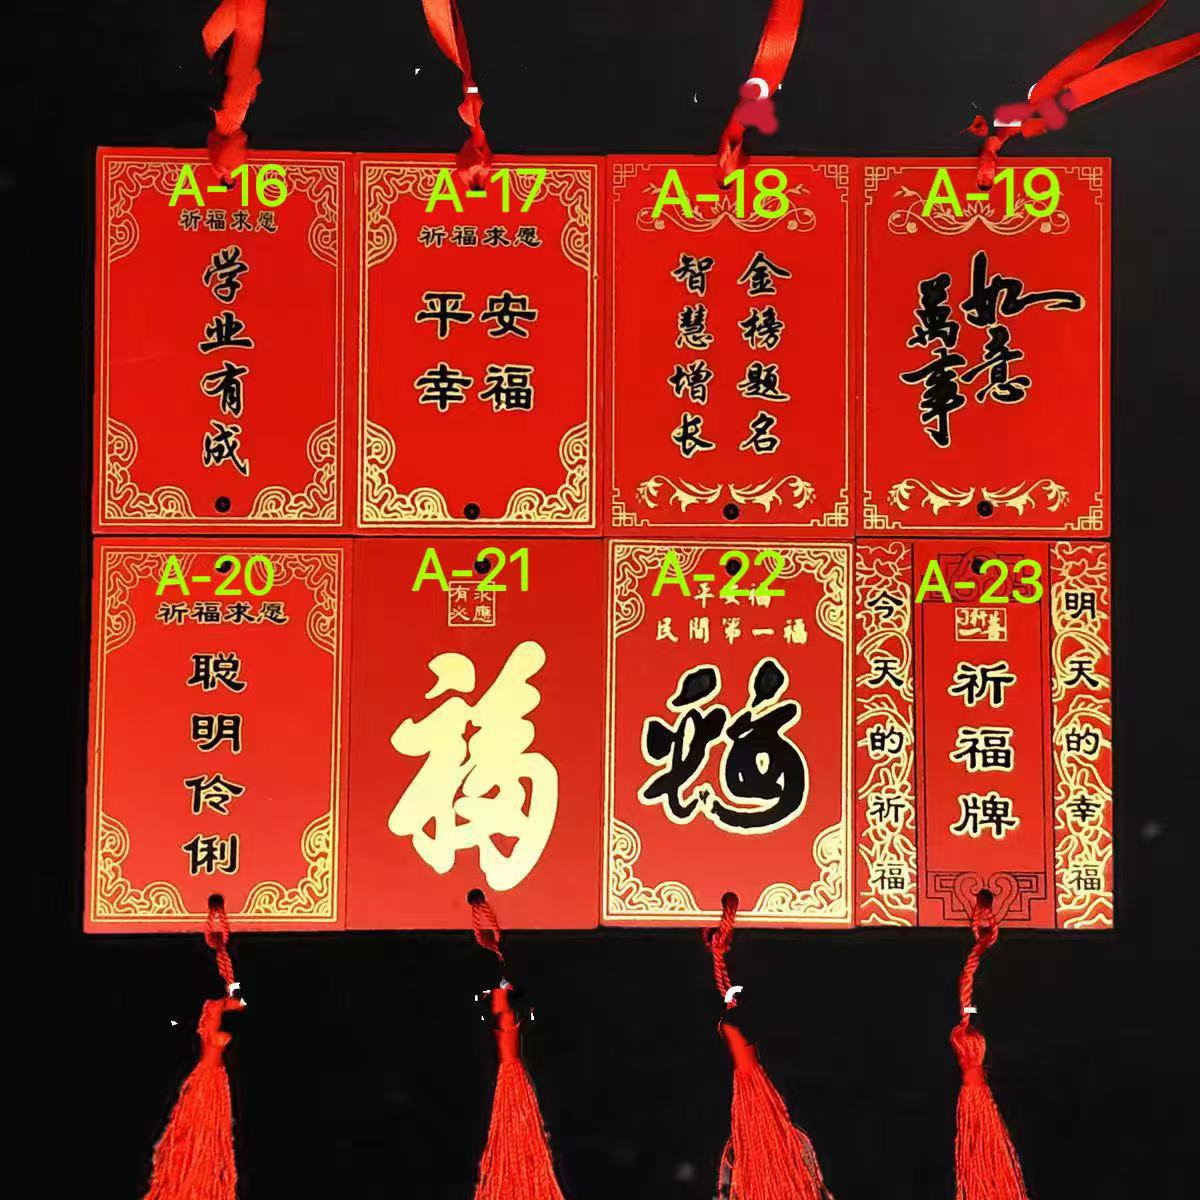 A-16
祈福求愿
学业有成
A-17
祈福求愿
平安
幸福
A-18
金榜题名
智慧增长
A-19
萬事
如意
A-20
祈福求愿
聪明伶俐
A-21
有求
必應
福
A-22
平安福
民間第一福
福
A-23
今天的祈福
祈福牌
明天的幸福